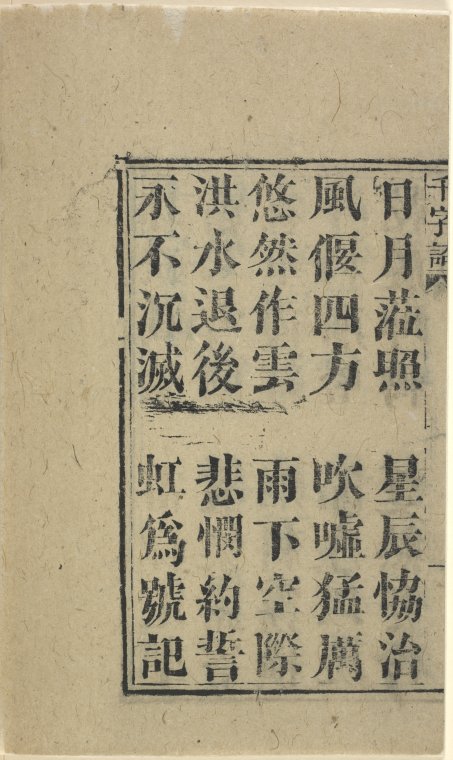 千字詔
日月蒞照 星辰恊治
風偃四方 吹噓猛厲
悠然作雲 雨下空際
洪水退後 悲憫約誓
永不沉滅 虹爲號記